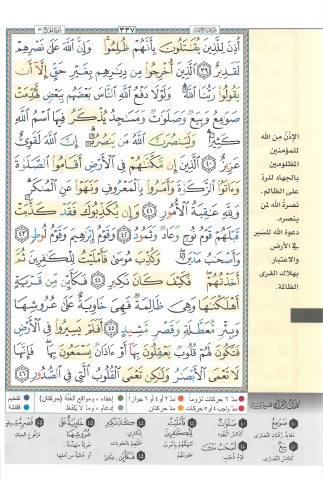 ٣٣٧
أُذِنَ لِلَّذِينَ يُقَٰتَلُونَ بِأَنَّهُمْ ظُلِمُوا۟ ۚ وَإِنَّ ٱللَّهَ عَلَىٰ نَصْرِهِمْ
لَقَدِيرٌ ٣٩ ٱلَّذِينَ أُخْرِجُوا۟ مِن دِيَٰرِهِم بِغَيْرِ حَقٍّ إِلَّآ أَن
يَقُولُوا۟ رَبُّنَا ٱللَّهُ ۗ وَلَوْلَا دَفْعُ ٱللَّهِ ٱلنَّاسَ بَعْضَهُم بِبَعْضٍ لَّهُدِّمَتْ
صَوَٰمِعُ وَبِيَعٌ وَصَلَوَٰتٌ وَمَسَٰجِدُ يُذْكَرُ فِيهَا ٱسْمُ ٱللَّهِ
كَثِيرًا ۗ وَلَيَنصُرَنَّ ٱللَّهُ مَن يَنصُرُهُۥٓ ۗ إِنَّ ٱللَّهَ لَقَوِىٌّ
عَزِيزٌ ٤٠ ٱلَّذِينَ إِن مَّكَّنَّٰهُمْ فِى ٱلْأَرْضِ أَقَامُوا۟ ٱلصَّلَوٰةَ
وَءَاتَوُا۟ ٱلزَّكَوٰةَ وَأَمَرُوا۟ بِٱلْمَعْرُوفِ وَنَهَوْا۟ عَنِ ٱلْمُنكَرِ ۗ
وَلِلَّهِ عَٰقِبَةُ ٱلْأُمُورِ ٤١ وَإِن يُكَذِّبُوكَ فَقَدْ كَذَّبَتْ
قَبْلَهُمْ قَوْمُ نُوحٍ وَعَادٌ وَثَمُودُ ٤٢ وَقَوْمُ إِبْرَٰهِيمَ وَقَوْمُ لُوطٍ ٤٣
وَأَصْحَٰبُ مَدْيَنَ ۖ وَكُذِّبَ مُوسَىٰ فَأَمْلَيْتُ لِلْكَٰفِرِينَ ثُمَّ
أَخَذْتُهُمْ ۖ فَكَيْفَ كَانَ نَكِيرِ ٤٤ فَكَأَيِّن مِّن قَرْيَةٍ
أَهْلَكْنَٰهَا وَهِىَ ظَالِمَةٌ فَهِىَ خَاوِيَةٌ عَلَىٰ عُرُوشِهَا
وَبِئْرٍ مُّعَطَّلَةٍ وَقَصْرٍ مَّشِيدٍ ٤٥ أَفَلَمْ يَسِيرُوا۟ فِى ٱلْأَرْضِ
فَتَكُونَ لَهُمْ قُلُوبٌ يَعْقِلُونَ بِهَآ أَوْ ءَاذَانٌ يَسْمَعُونَ بِهَا ۖ فَإِنَّهَا
لَا تَعْمَى ٱلْأَبْصَٰرُ وَلَٰكِن تَعْمَى ٱلْقُلُوبُ ٱلَّتِى فِى ٱلصُّدُورِ ٤٦
الإذن من الله
للمؤمنين
المظلومين
بالجهاد للرد
على الظالم.
نصرة الله لمن
ينصره.
دعوة الله للسير
في الأرض
والاعتبار
بهلاك القرى
الظالمة.
مدّ ٦ حركات لزوماً
مدّ ٢ أو ٤ أو ٦ جوازاً
إخفاء، ومواقع الغنّة (حركتان)
تفخيم
مدّ واجب ٤ أو ٥ حركات
مدّ حركتان
إدغام، وما لا يُلفظ
قلقلة